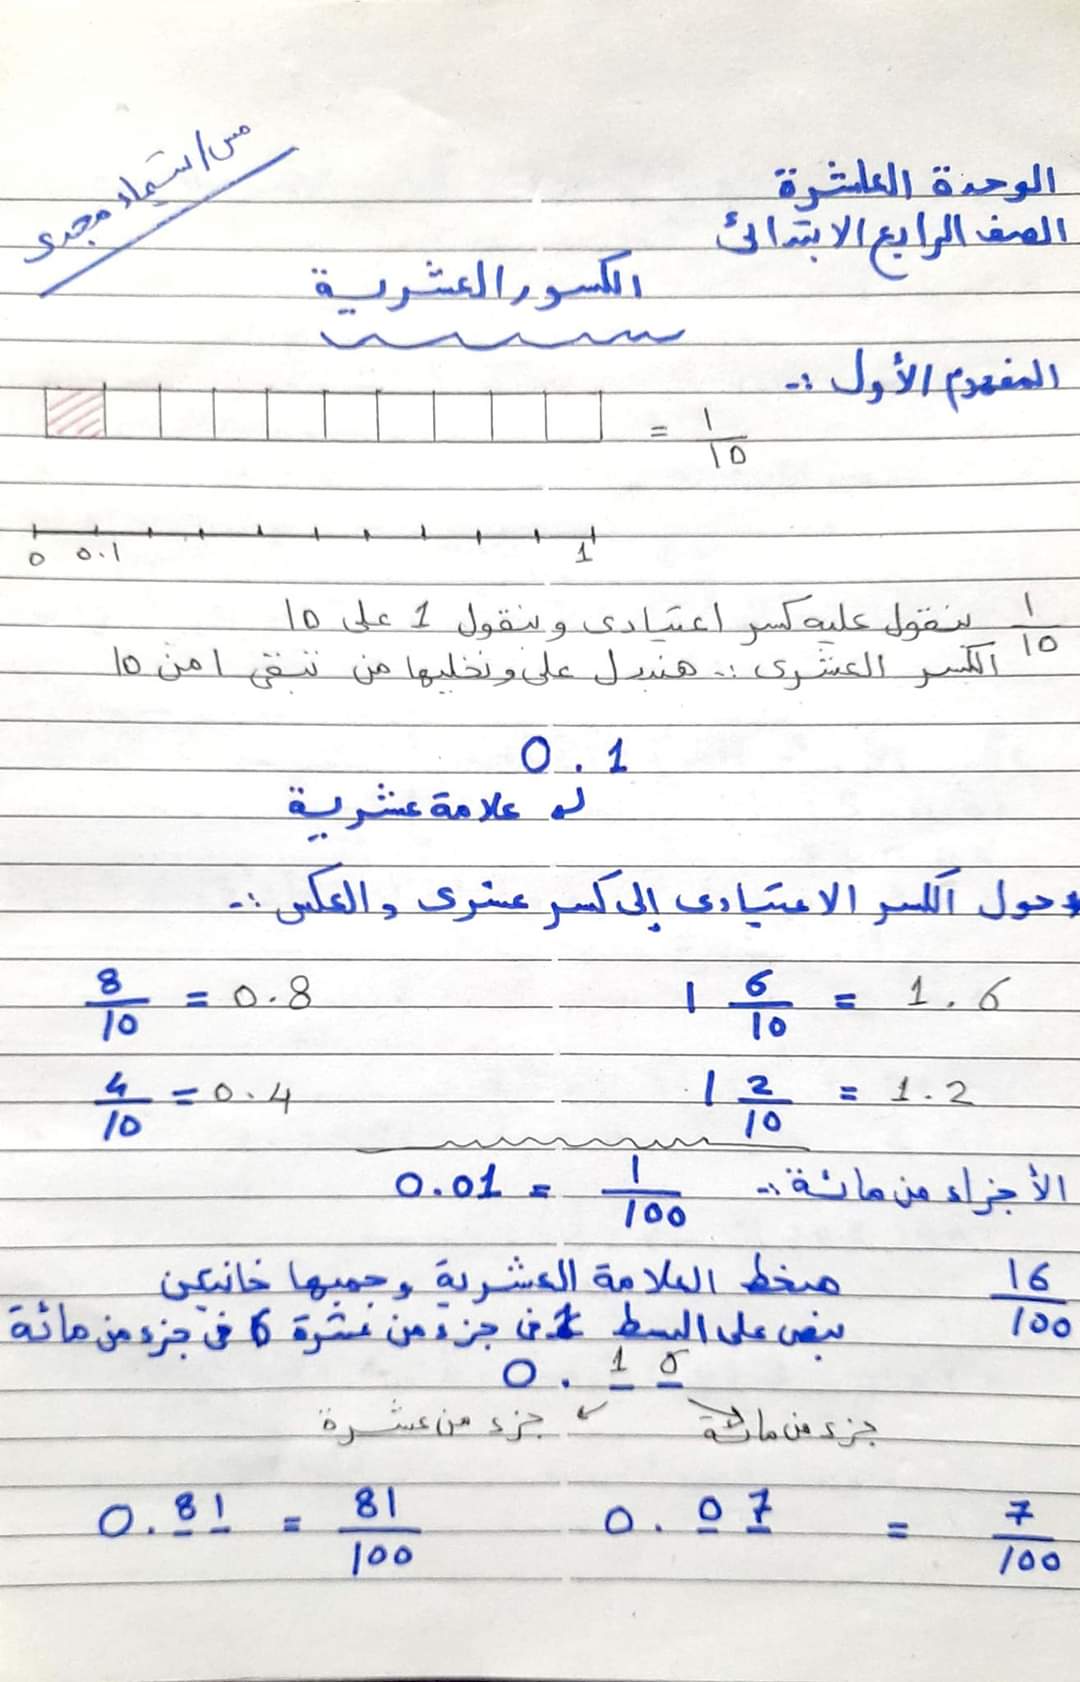 مس/ شيماء مجدى
الوحدة العاشرة
الصف الرابع الابتدائى
الكسور العشرية
المفهوم الأول :-
= 1/10
0 0.1 1
1/10 بنقول عليه كسر اعتيادى وبنقول 1 على 10
الكسر العشرى :- هنبدل على ونخليها من تبقى 1 من 10
0.1
علامة عشرية
حول الكسر الاعتيادى إلى كسر عشرى والعكس :-
8/10 = 0.8 1 6/10 = 1.6
4/10 = 0.4 1 2/10 = 1.2
الأجزاء من مائة :- 1/100 = 0.01
16/100 هنحط العلامة العشرية وجمبها خانتين
نبص على البسط 1 فى جزء من عشرة 6 فى جزء من مائة
0.16
جزء من مائة جزء من عشرة
7/100 = 0.07 81/100 = 0.81